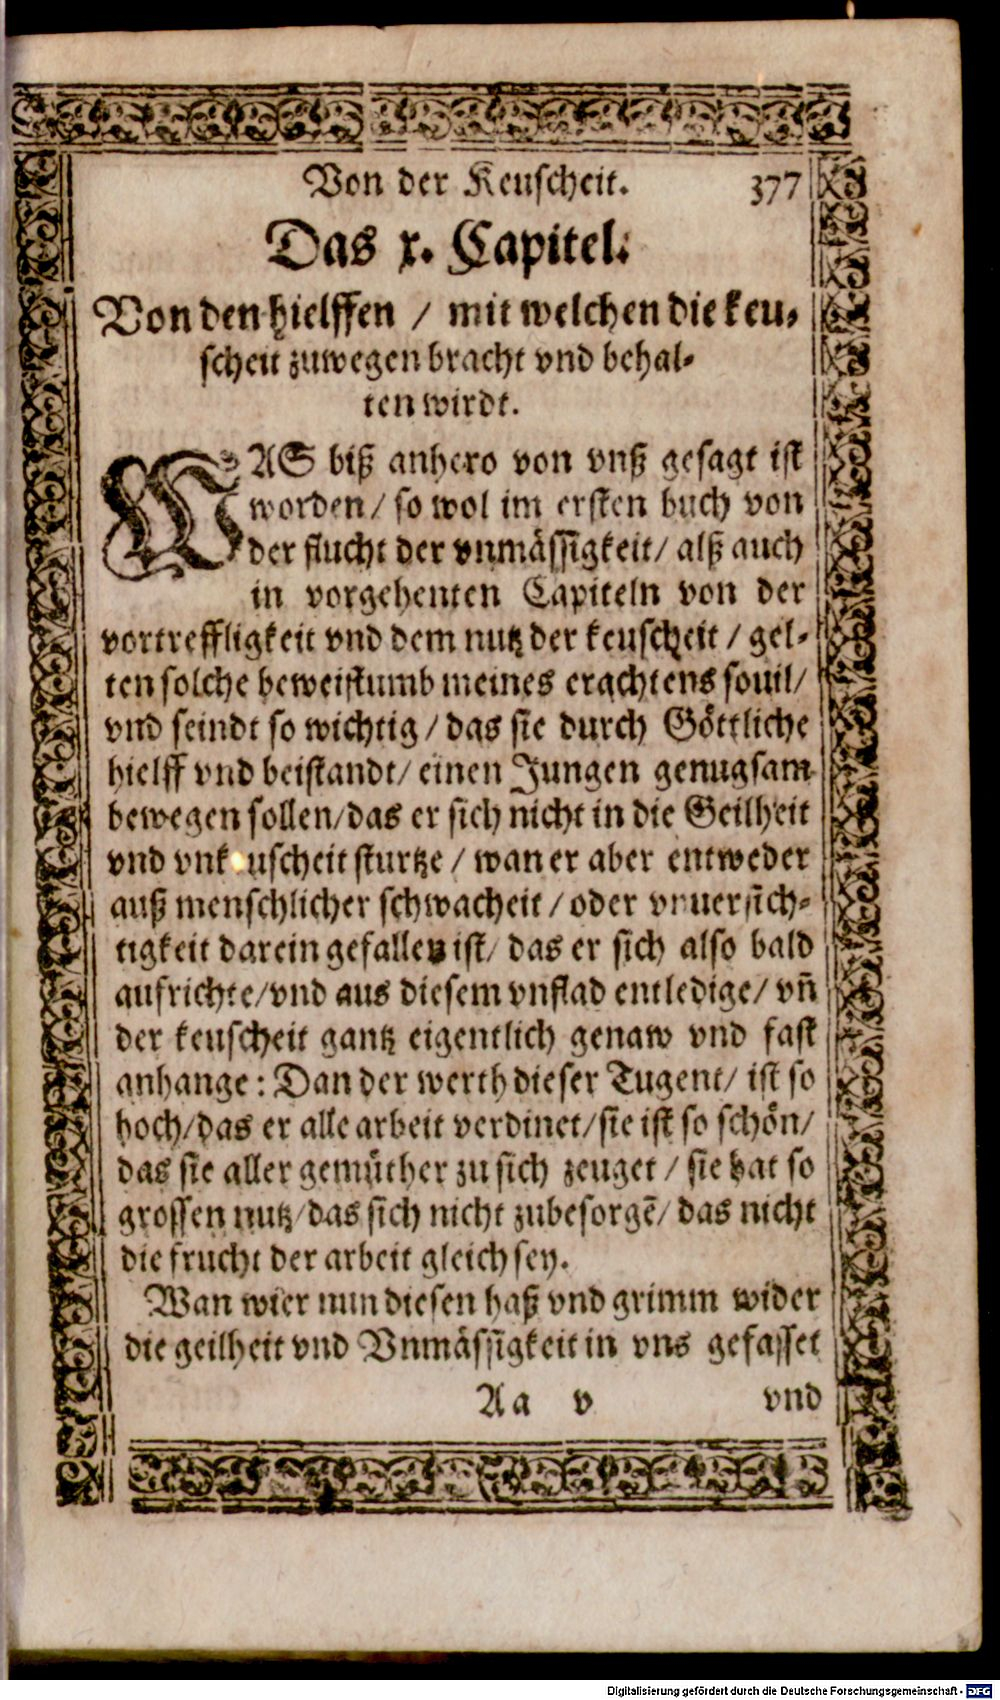 Von der Keuscheit. 377
Das x. Capitel.
Von den hielffen / mit welchen die keu-
scheit zuwegen bracht vnd behal-
ten wirdt.
WAS biß anhero von vnß gesagt ist
worden / so wol im ersten buch von
der flucht der vnmässigkeit / alß auch
in vorgehenten Capiteln von der
vortreffligkeit vnd dem nutz der keuscheit / gel-
ten solche beweistumb meines erachtens souil /
vnd seindt so wichtig / das sie durch Göttliche
hielff vnd beistandt / einen Jungen genugsam
bewegen sollen / das er sich nicht in die Geilheit
vnd vnkeuscheit sturtze / wan er aber entweder
auß menschlicher schwacheit / oder vnuersich-
tigkeit darein gefallen ist / das er sich also bald
aufrichte / vnd aus diesem vnflad entledige / vn̄
der keuscheit gantz eigentlich genaw vnd fast
anhange: Dan der werth dieser Tugent / ist so
hoch / das er alle arbeit verdinet / sie ist so schön /
das sie aller gemüther zu sich zeuget / sie hat so
grossen nutz / das sich nicht zubesorgē / das nicht
die frucht der arbeit gleich sey.
Wan wier nun diesen haß vnd grimm wider
die geilheit vnd Vnmässigkeit in vns gefasset
Aa v vnd
Digitalisierung gefördert durch die Deutsche Forschungsgemeinschaft - DFG